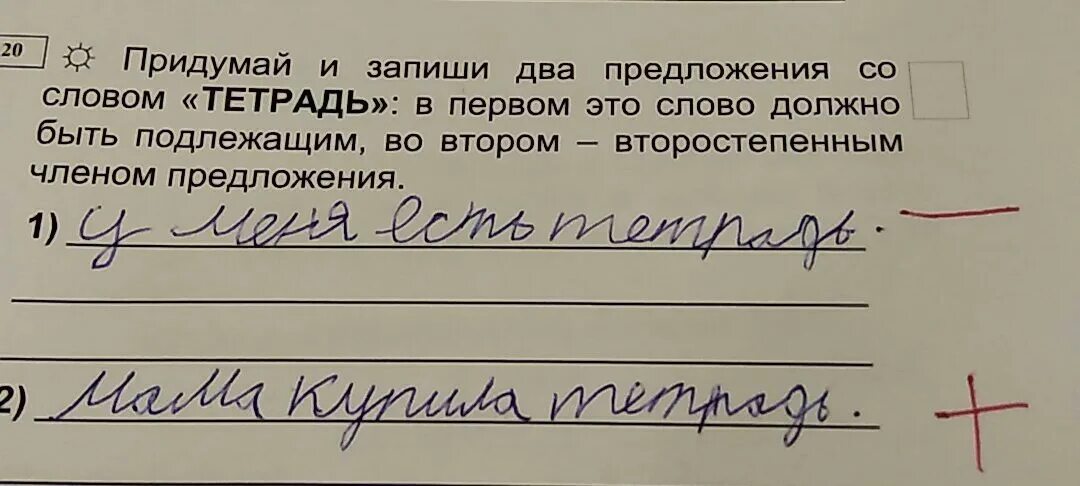 20 Придумай и запиши два предложения со
словом «ТЕТРАДЬ»: в первом это слово должно
быть подлежащим, во втором – второстепенным
членом предложения.
1) у меня есть тетрадь.
2) Мама купила тетрадь.